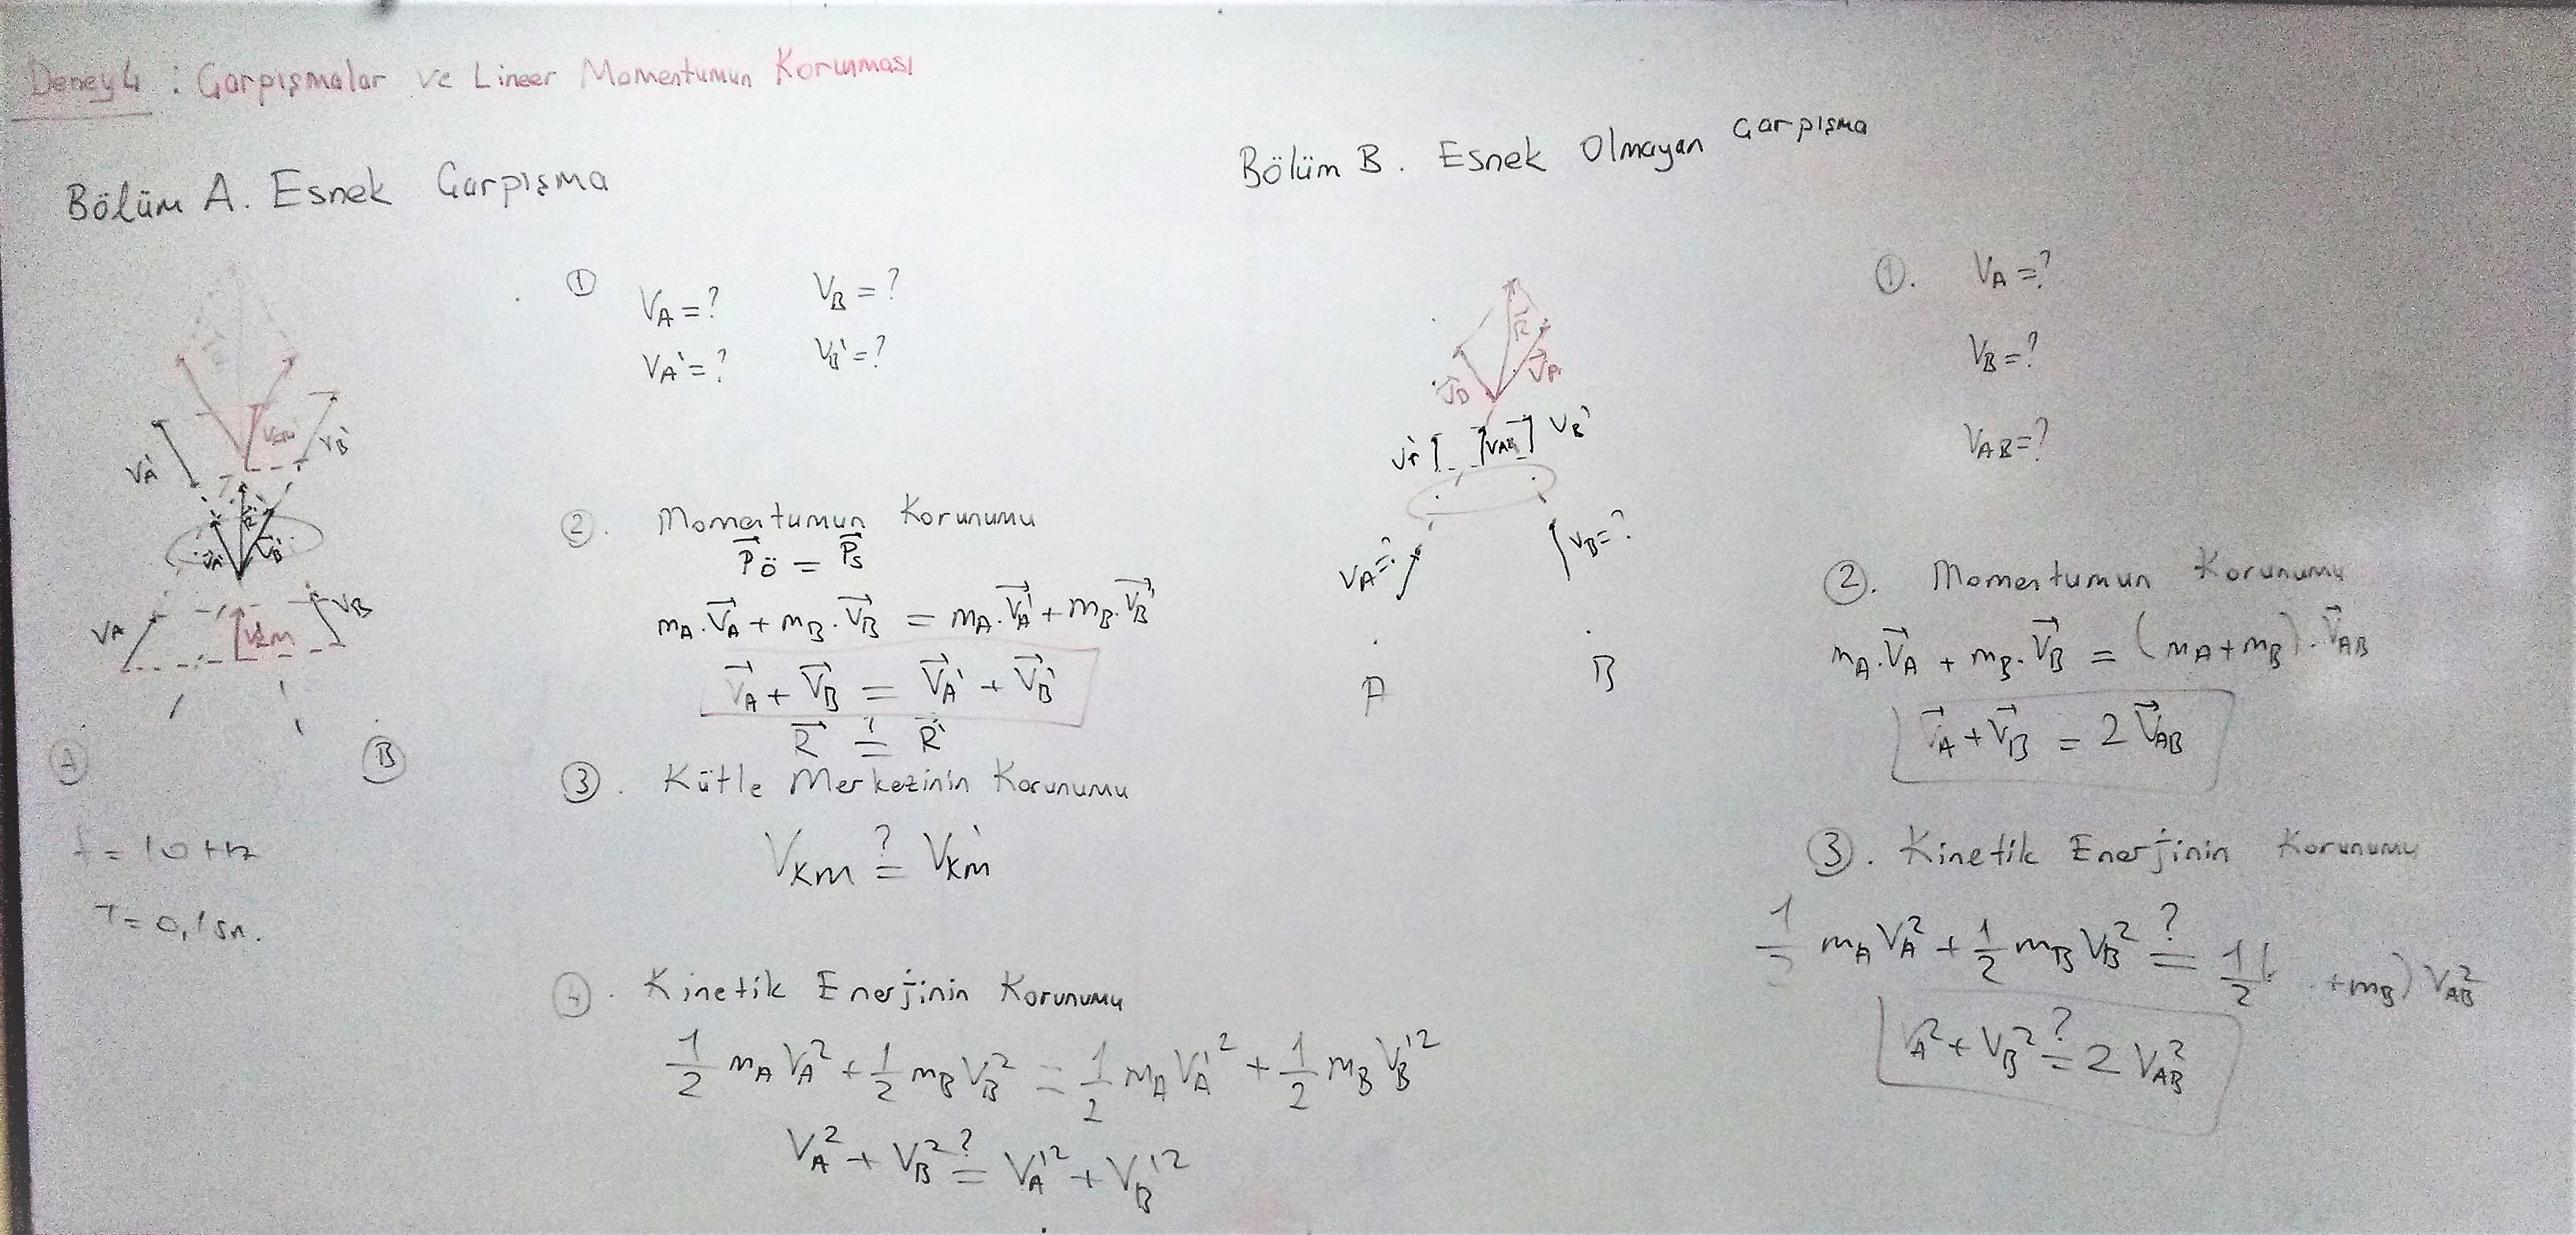 Deney 4 : Çarpışmalar ve Lineer Momentumun Korunması
Bölüm A. Esnek Çarpışma
① V_A = ? V_B = ?
V_A' = ? V_B' = ?
V_A' V_B'
R⃗'
V⃗_A' V⃗_B'
V_A V_KM V_B
A B
f = 10 Hz
T = 0,1 sn.
②. Momentumun Korunumu
P⃗_Ö = P⃗_S
m_A.V⃗_A + m_B.V⃗_B = m_A.V⃗_A' + m_B.V⃗_B'
V⃗_A + V⃗_B = V⃗_A' + V⃗_B'
R⃗ ?= R⃗'
③. Kütle Merkezinin Korunumu
V_KM ?= V_KM'
④. Kinetik Enerjinin Korunumu
1/2 m_A V_A² + 1/2 m_B V_B² = 1/2 m_A V_A'² + 1/2 m_B V_B'²
V_A² + V_B² ?= V_A'² + V_B'²
Bölüm B. Esnek Olmayan Çarpışma
R⃗
V⃗_B V⃗_A
V_AB V_B'
V_A = ? V_B = ?
A B
①. V_A = ?
V_B = ?
V_AB = ?
②. Momentumun Korunumu
m_A.V⃗_A + m_B.V⃗_B = (m_A + m_B).V⃗_AB
V⃗_A + V⃗_B = 2 V⃗_AB
③. Kinetik Enerjinin Korunumu
1/2 m_A V_A² + 1/2 m_B V_B² ?= 1/2 ( + m_B) V_AB²
V_A² + V_B² ?= 2 V_AB²